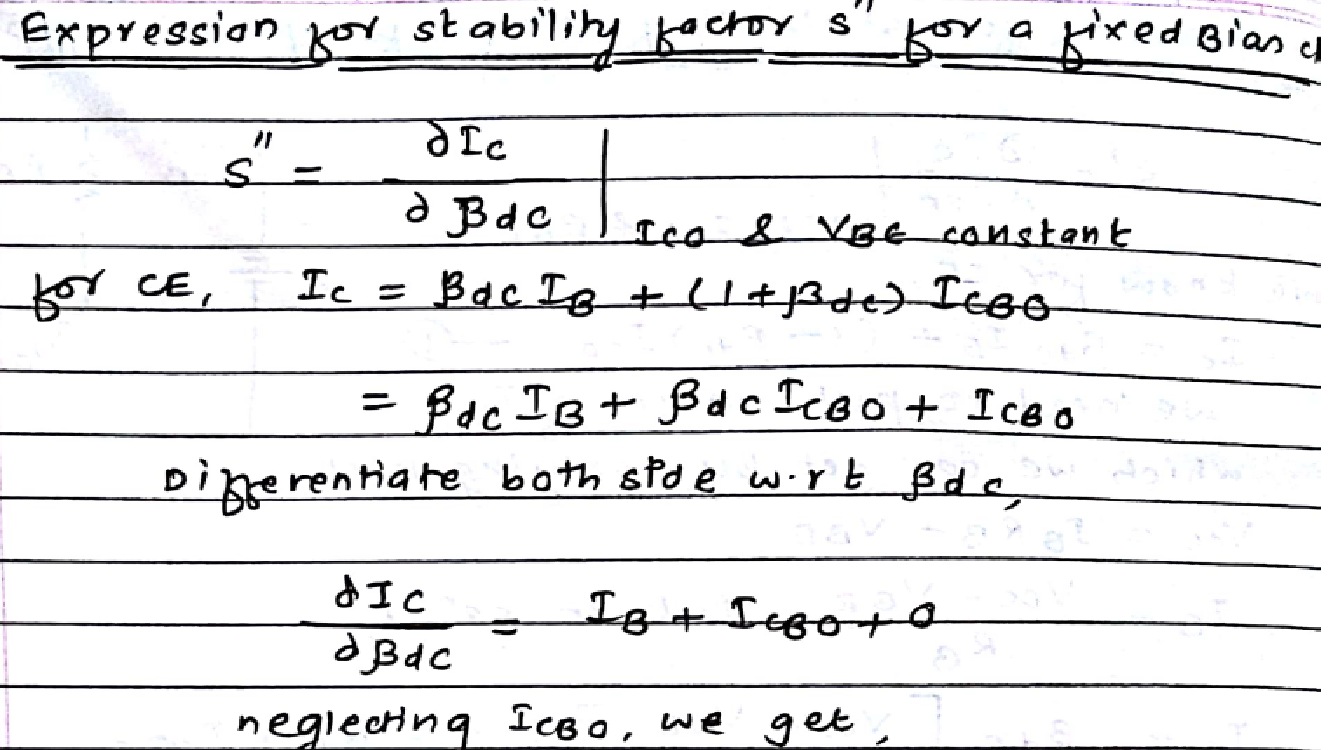 Expression for stability factor s" for a fixed Bias
S" = ∂Ic / ∂βdc | Ico & VBE constant
for CE, Ic = βdc IB + (1+βdc) ICBO
= βdc IB + βdc ICBO + ICBO
Differentiate both side w.r t βdc,
∂Ic / ∂βdc = IB + ICBO + 0
neglecting ICBO, we get,